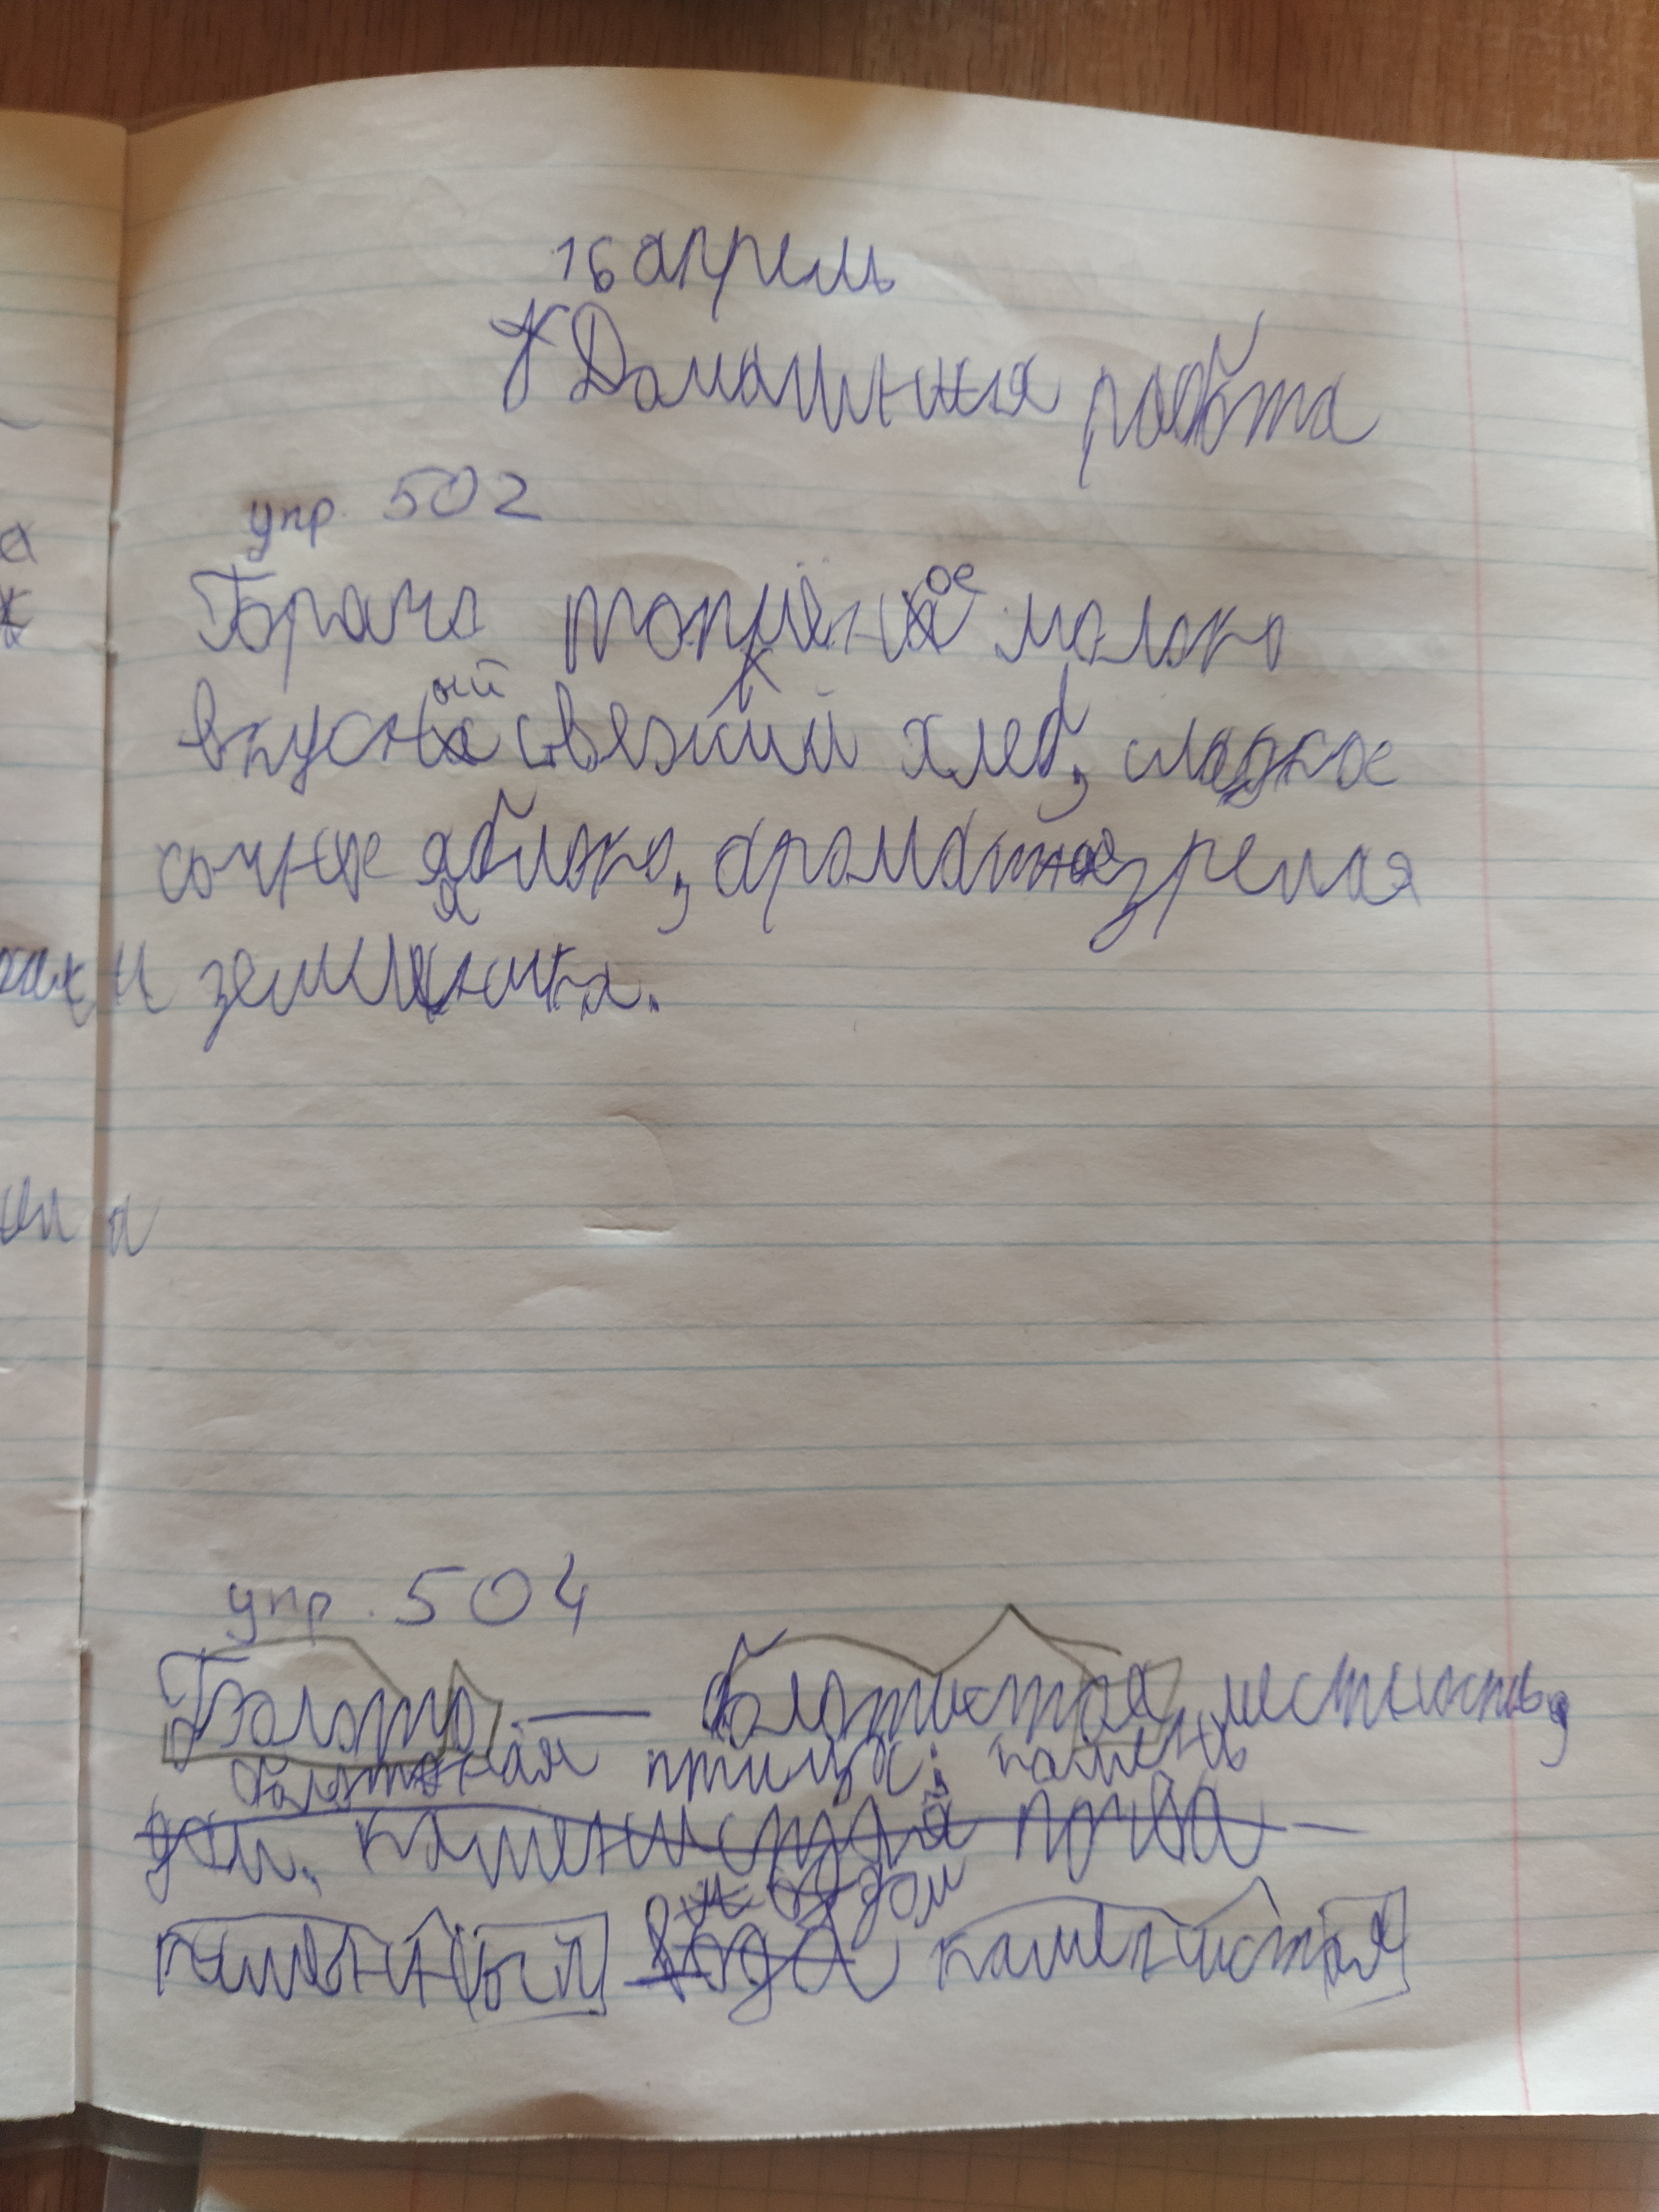 16 апрель
Домашняя работа
упр. 502
Горячо топлёное молоко
вкусный свежий хлеб, сладкое
сочное яблоко, ароматная зрелая
земляника.
упр. 504
Болото — болотистая местность,
болотная птица; камень
дом. почва —
каменный дом каменистая